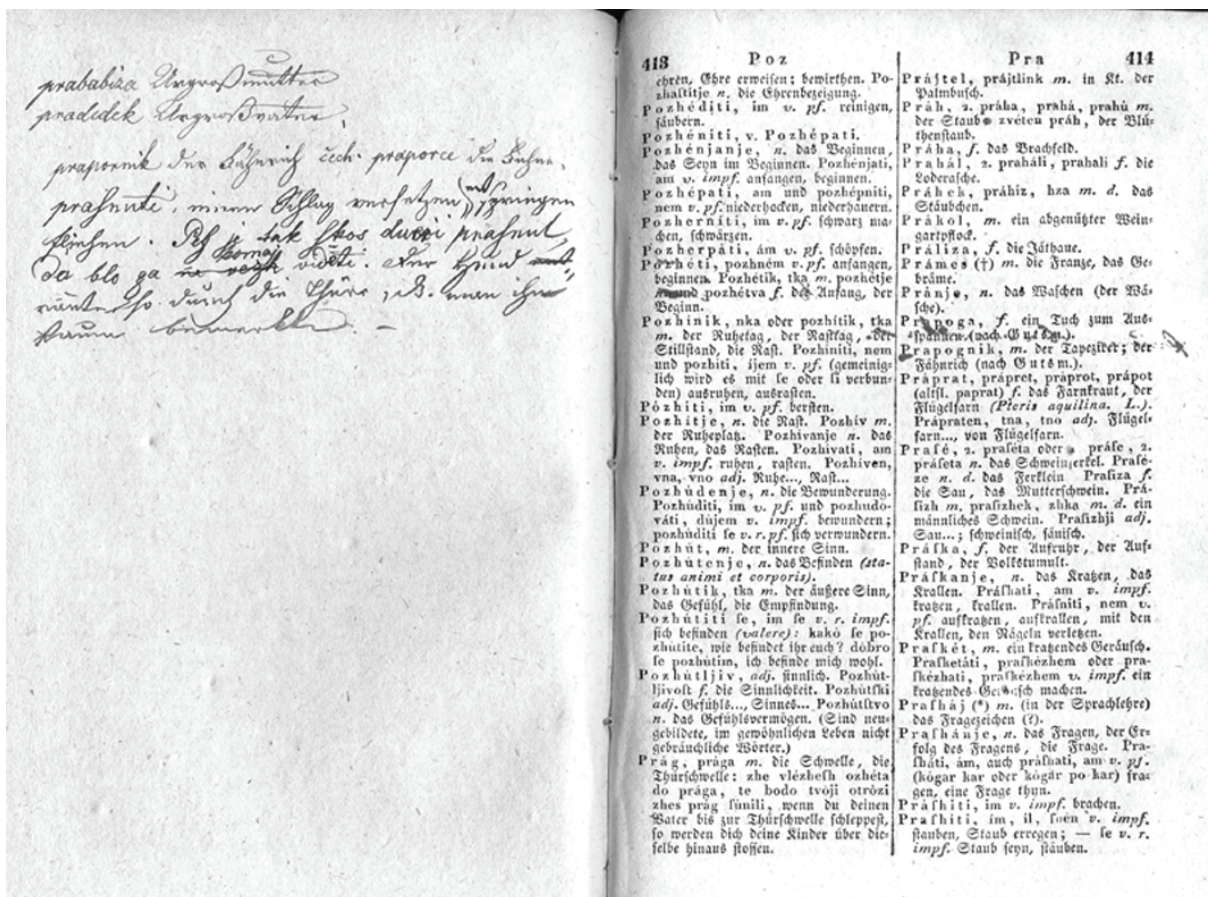 prababiza Urgroßmutter
pradedek Urgroßvater.
prapornik der Fähnrich čech. praporce die Fahne.
prasnuti, einen Schlag versetzen, springen
fliehen. Pes je tak skos duri prasnul,
da blo ga komaj viditi. Der Hund
rannte so durch die Thüre, daß man ihn
kaum bemerkte. –
413 Poz
ehren, Ehre erweisen; bewirthen. Po-
zhaſtitje n. die Ehrenbezeigung.
Pozhéditi, im v. pf. reinigen,
ſäubern.
Pozhéniti, v. Pozhépati.
Pozhénjanje, n. das Beginnen,
das Seyn im Beginnen. Pozhénjati,
am v. impf. anfangen, beginnen.
Pozhépati, am und pozhépniti,
nem v. pf. niederhocken, niederhauern.
Pozherníti, ím v. pf. ſchwarz ma-
chen, ſchwärzen.
Pozherpáti, ám v. pf. ſchöpfen.
Pozhéti, pozhném v. pf. anfangen,
beginnen. Pozhétik, tka m. pozhétje
pozhétva f. der Anfang, der
Beginn.
Pozhinik, nka oder pozhítik, tka
m. der Ruhetag, der Raſttag, der
Stillſtand, die Raſt. Pozhiniti, nem
und pozhiti, íjem v. pf. (gemeinig-
lich wird es mit ſe oder ſi verbun-
den) ausruhen, ausraſten.
Pózhiti, im v. pf. berſten.
Pozhitje, n. die Raſt. Pozhiv m.
der Ruheplatz. Pozhivanje n. das
Ruhen, das Raſten. Pozhivati, am
v. impf. ruhen, raſten. Pozhiven,
vna, vno adj. Ruhe..., Raſt...
Pozhúdenje, n. die Bewunderung.
Pozhúditi, im v. pf. und pozhudo-
váti, dújem v. impf. bewundern;
pozhúditi ſe v. r. pf. ſich verwundern.
Pozhút, m. der innere Sinn.
Pozhútenje, n. das Befinden (sta-
tus animi et corporis).
Pozhútik, tka m. der äußere Sinn,
das Gefühl, die Empfindung.
Pozhútiti ſe, im ſe v. r. impf.
ſich befinden (valere): kakó ſe po-
zhútite, wie befindet ihr euch? dóbro
ſe pozhútim, ich befinde mich wohl.
Pozhútljiv, adj. ſinnlich. Pozhút-
ljivoſt f. die Sinnlichkeit. Pozhútſki
adj. Gefühls..., Sinnes... Pozhútſtvo
n. das Gefühlsvermögen. (Sind neu-
gebildete, im gewöhnlichen Leben nicht
gebräuchliche Wörter.)
Prág, prága m. die Schwelle, die
Thürſchwelle: zhe vlézheſh ozhéta
do prága, te bodo tvóji otrózi
zhes prág ſúnili, wenn du deinen
Vater bis zur Thürſchwelle ſchleppeſt,
ſo werden dich deine Kinder über die-
ſelbe hinaus ſtoſſen.
Pra 414
Prájtel, prájtlink m. in Kt. der
Palmbuſch.
Práh, 2. práha, prahá, prahú m.
der Staub zvéten práh, der Blü-
thenſtaub.
Práha, f. das Brachfeld.
Prahál, 2. praháli, prahali f. die
Loderaſche.
Práhek, práhiz, hza m. d. das
Stäubchen.
Prákol, m. ein abgenützter Wein-
gartpflock.
Práliza, f. die Jäthaue.
Prámes (†) m. die Franze, das Ge-
bräme.
Pránje, n. das Waſchen (der Wä-
ſche).
Prapoga, f. ein Tuch zum Aus-
ſpannen (nach Gutsm.).
Prapognik, m. der Tapezirer; der
Fähnrich (nach Gutsm.).
Práprat, prápret, práprot, prápot
(altſl. paprat) f. das Farnkraut, der
Flügelfarn (Pteris aquilina. L.).
Prápraten, tna, tno adj. Flügel-
farn..., von Flügelfarn.
Praſé, 2. praſéta oder práſe, 2.
práſeta n. das Schwein, Ferkel. Praſé-
ze n. d. das Ferklein Praſiza f.
die Sau, das Mutterſchwein. Prá-
ſizh m. praſizhek, zhka m. d. ein
männliches Schwein. Praſizhji adj.
Sau...; ſchweiniſch, ſäuiſch.
Práſka, f. der Aufruhr, der Auf-
ſtand, der Volkstumult.
Práſkanje, n. das Kratzen, das
Krallen. Práſhati, am v. impf.
kratzen, krallen. Práſniti, nem v.
pf. aufkratzen, aufkrallen, mit den
Krallen, den Nägeln verletzen.
Praſkét, m. ein kratzendes Geräuſch.
Praſketáti, praſkézhem oder pra-
ſkézhati, praſkézhem v. impf. ein
kratzendes Geräuſch machen.
Praſháj (*) m. (in der Sprachlehre)
das Fragezeichen (?).
Praſhánje, n. das Fragen, der Er-
folg des Fragens, die Frage. Pra-
ſháti, ám, auch práſhati, am v. pf.
(kógar kar oder kógar po kar) fra-
gen, eine Frage thun.
Práſhiti, im v. impf. brachen.
Praſhiti, im, il, ſhen v. impf.
ſtauben, Staub erregen; — ſe v. r.
impf. Staub ſeyn, ſtäuben.